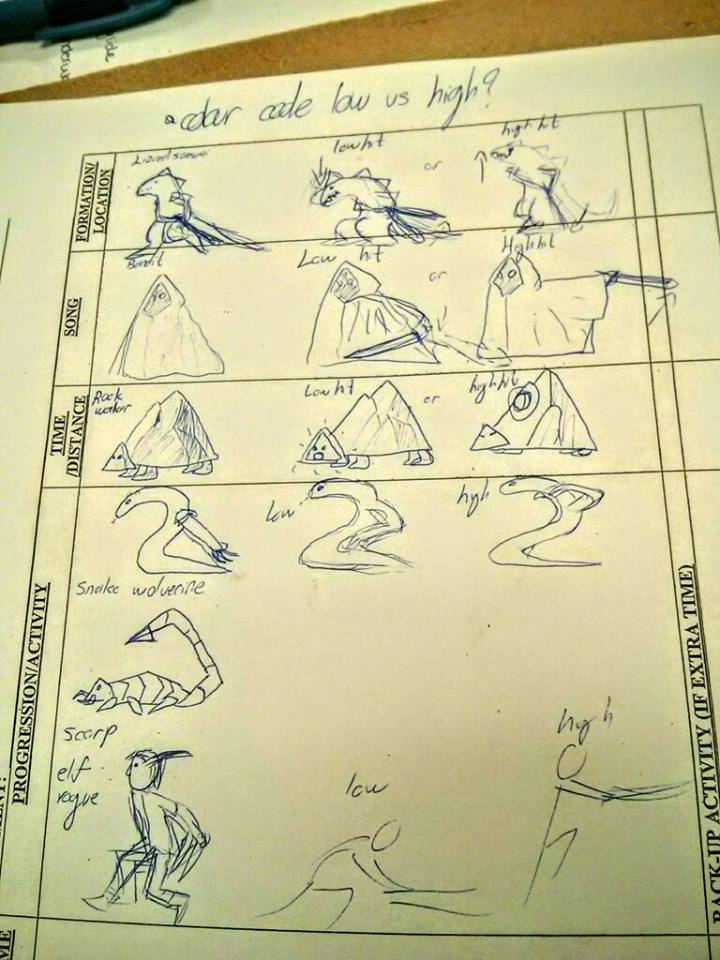 colour code low vs high?
FORMATION/
LOCATION
Lizard samurai
low hit
or
high hit
SONG
Bandit
Low hit
or
High hit
TIME
/DISTANCE
Rock
Low hit
or
high hit
PROGRESSION/ACTIVITY
low
high
Snake wolverine
scorp
elf
rogue
low
high
BACK-UP ACTIVITY (IF EXTRA TIME)